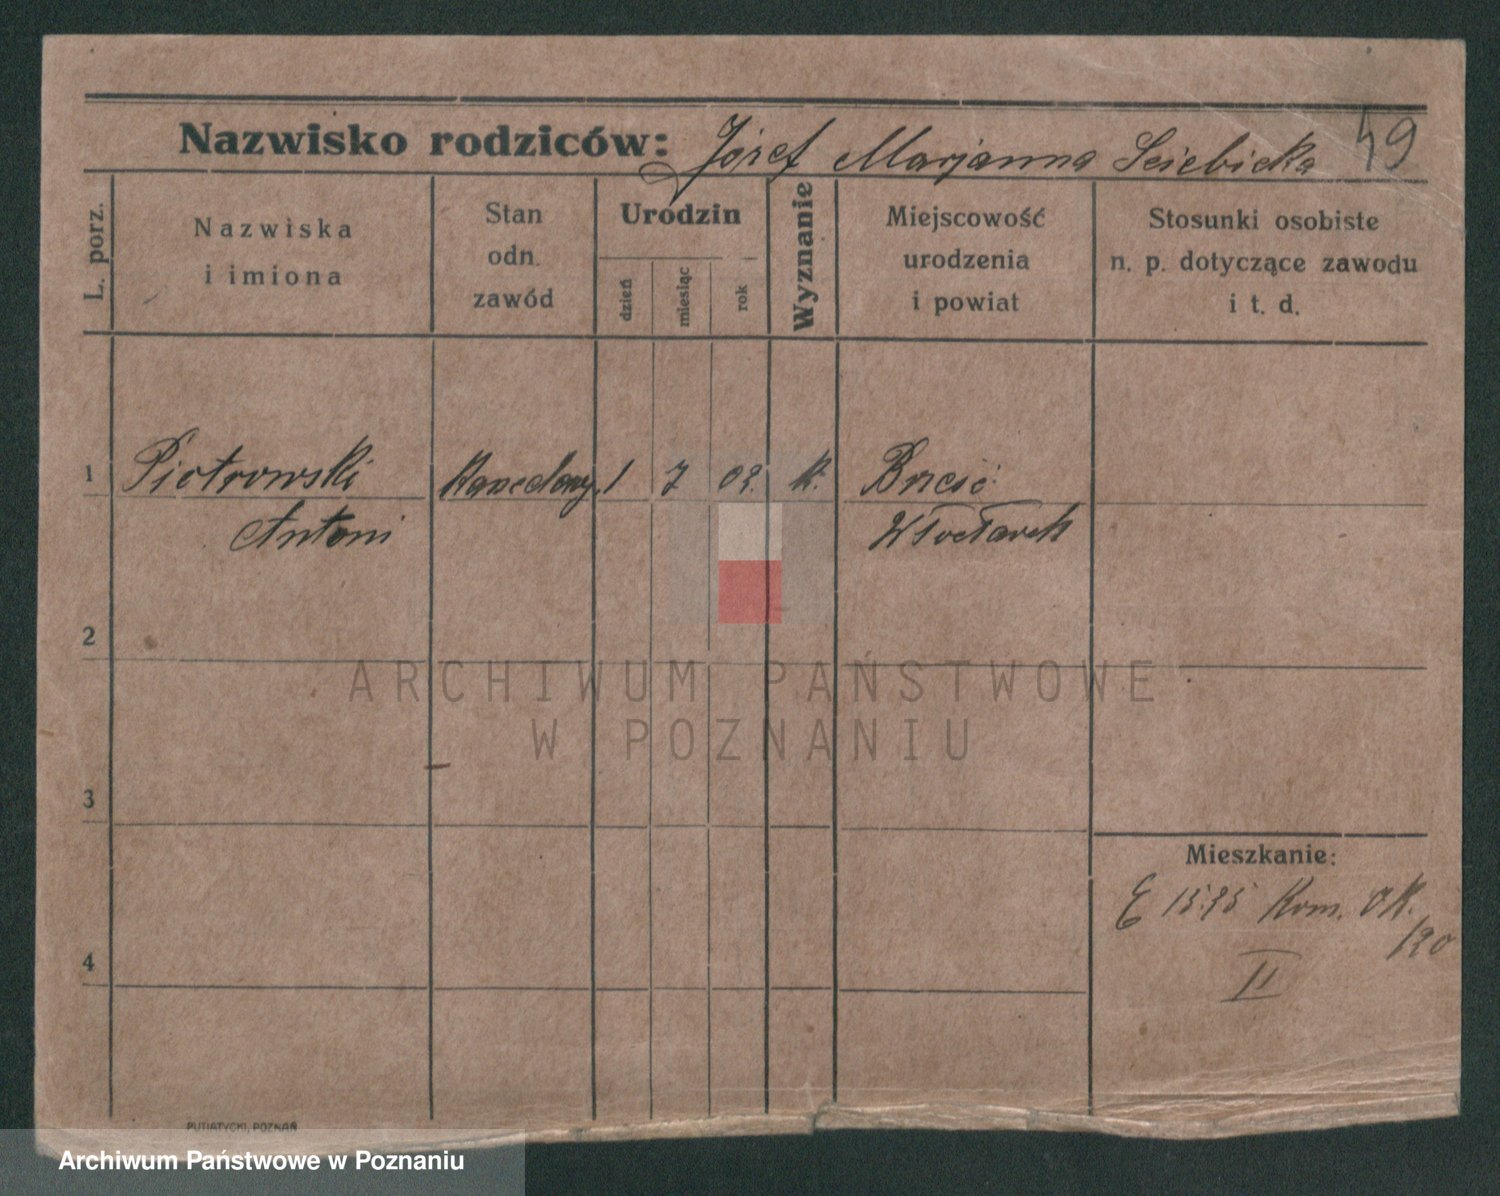 49
Nazwisko rodziców: Józef Marjanna Sciebicka
L. porz.
Nazwiska
i imiona
Stan
odn.
zawód
Urodzin
dzień
miesiąc
rok
Wyznanie
Miejscowość
urodzenia
i powiat
Stosunki osobiste
n. p. dotyczące zawodu
i t. d.
1 Piotrowski 1 7 02. k. Brześć
Antoni Włocławek
2
3
4
Mieszkanie:
E 1525 Kom.
120
II
PUTIATYCKI, POZNAŃ
ARCHIWUM PAŃSTWOWE
W POZNANIU
Archiwum Państwowe w Poznaniu